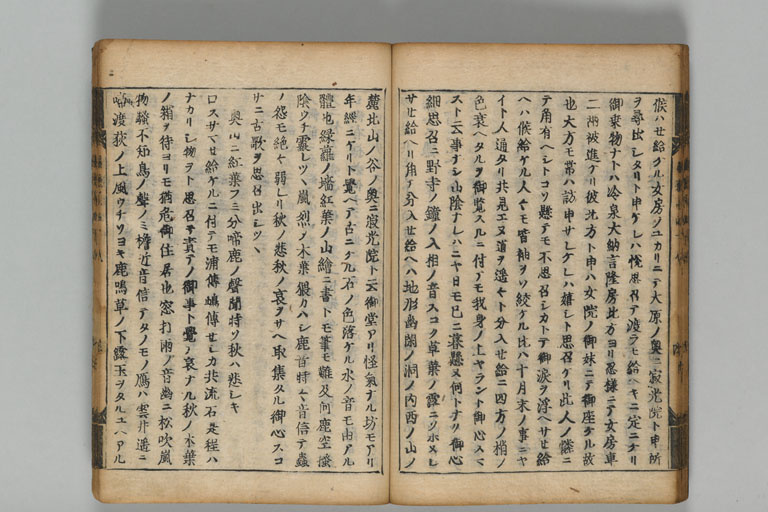 候ハせ給ケル女房ノユカリニテ大原ノ奥ニ寂光院ト申所
ヲ尋出シタリト申ケレハ悦思召テ渡ラせ給ヘキニ定ニケリ
御乗物ナトハ冷泉大納言隆房北方ヨリ忍様ニテ女房車
二両被進ケリ彼北方ト申ハ女院ノ御妹ニテ御座ケル故
也大方モ常ハ訪申サレケレハ嬉シト思召ケリ此人ノ憐ニ
テ角有ヘシトコソ懸テモ不思召シカトテ御涙ヲ浮ヘサせ給
ヘハ候給ケル人々モ皆袖ヲソ絞ケル比ハ十月末ノ事ニヤ
イト人通タリ共見エヌ道ヲ遥々ト分入せ給ニ四方ノ梢ノ
色衰ヘタルヲ御覧スルニ付テモ我身ノ上ヤラント御心スマ
スト云事ナシ山陰ナレハニヤ日モ已ニ暮懸ヌ何トナリ御心
細思召ニ野寺ノ鐘ノ入相ノ音スコク草葉ノ露ニソホヌレ
サせ給ヘリ角テ分入せ給ヘハ地形幽閑ノ洞ノ内西ノ山ノ
麓北山ノ谷ノ奥ニ寂光院ト云御堂アリ怪気ナル坊モアリ
年経ニケリト覚ヘテ古ニケル石ノ色落ケル水ノ音モ由アル
體也緑蘿ノ墻紅葉ノ山絵ニ書トモ筆モ難及何鹿空
陰ウチ霎レツヽ嵐烈ク木葉猥カハシ鹿首時々音信テ虫
ノ怨モ絶々弱レリ秋ノ悲秋ノ哀ヲサヘ取集タル御心スコ
サニ古歌ヲ思召出シツヽ
奥山ニ紅葉フミ分啼鹿ノ声聞時ソ秋ハ悲シキ
口スサマせ給ケルニ付テモ浦傳嶋傳せシカ共流石是程ハ
ナカリシ物ヲト思召モ責テノ御事ト覚テ哀ナル秋ノ木葉
ノ緒ヲ待ヨリモ猶危御住居也窓打雨ノ音幽ニ松吹嵐
物騒不知鳥ノ声ノミ檐近音信テタノモノ鴈ハ雲井遥ニ
啼渡荻ノ上風ウチソヨキ鹿鳴草ノ下露玉ヲタルユヘアル